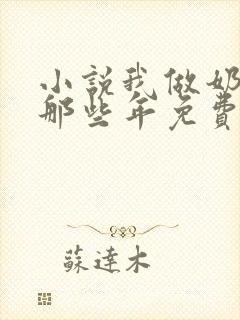 小说我做奶
那些年免费
蘇達木